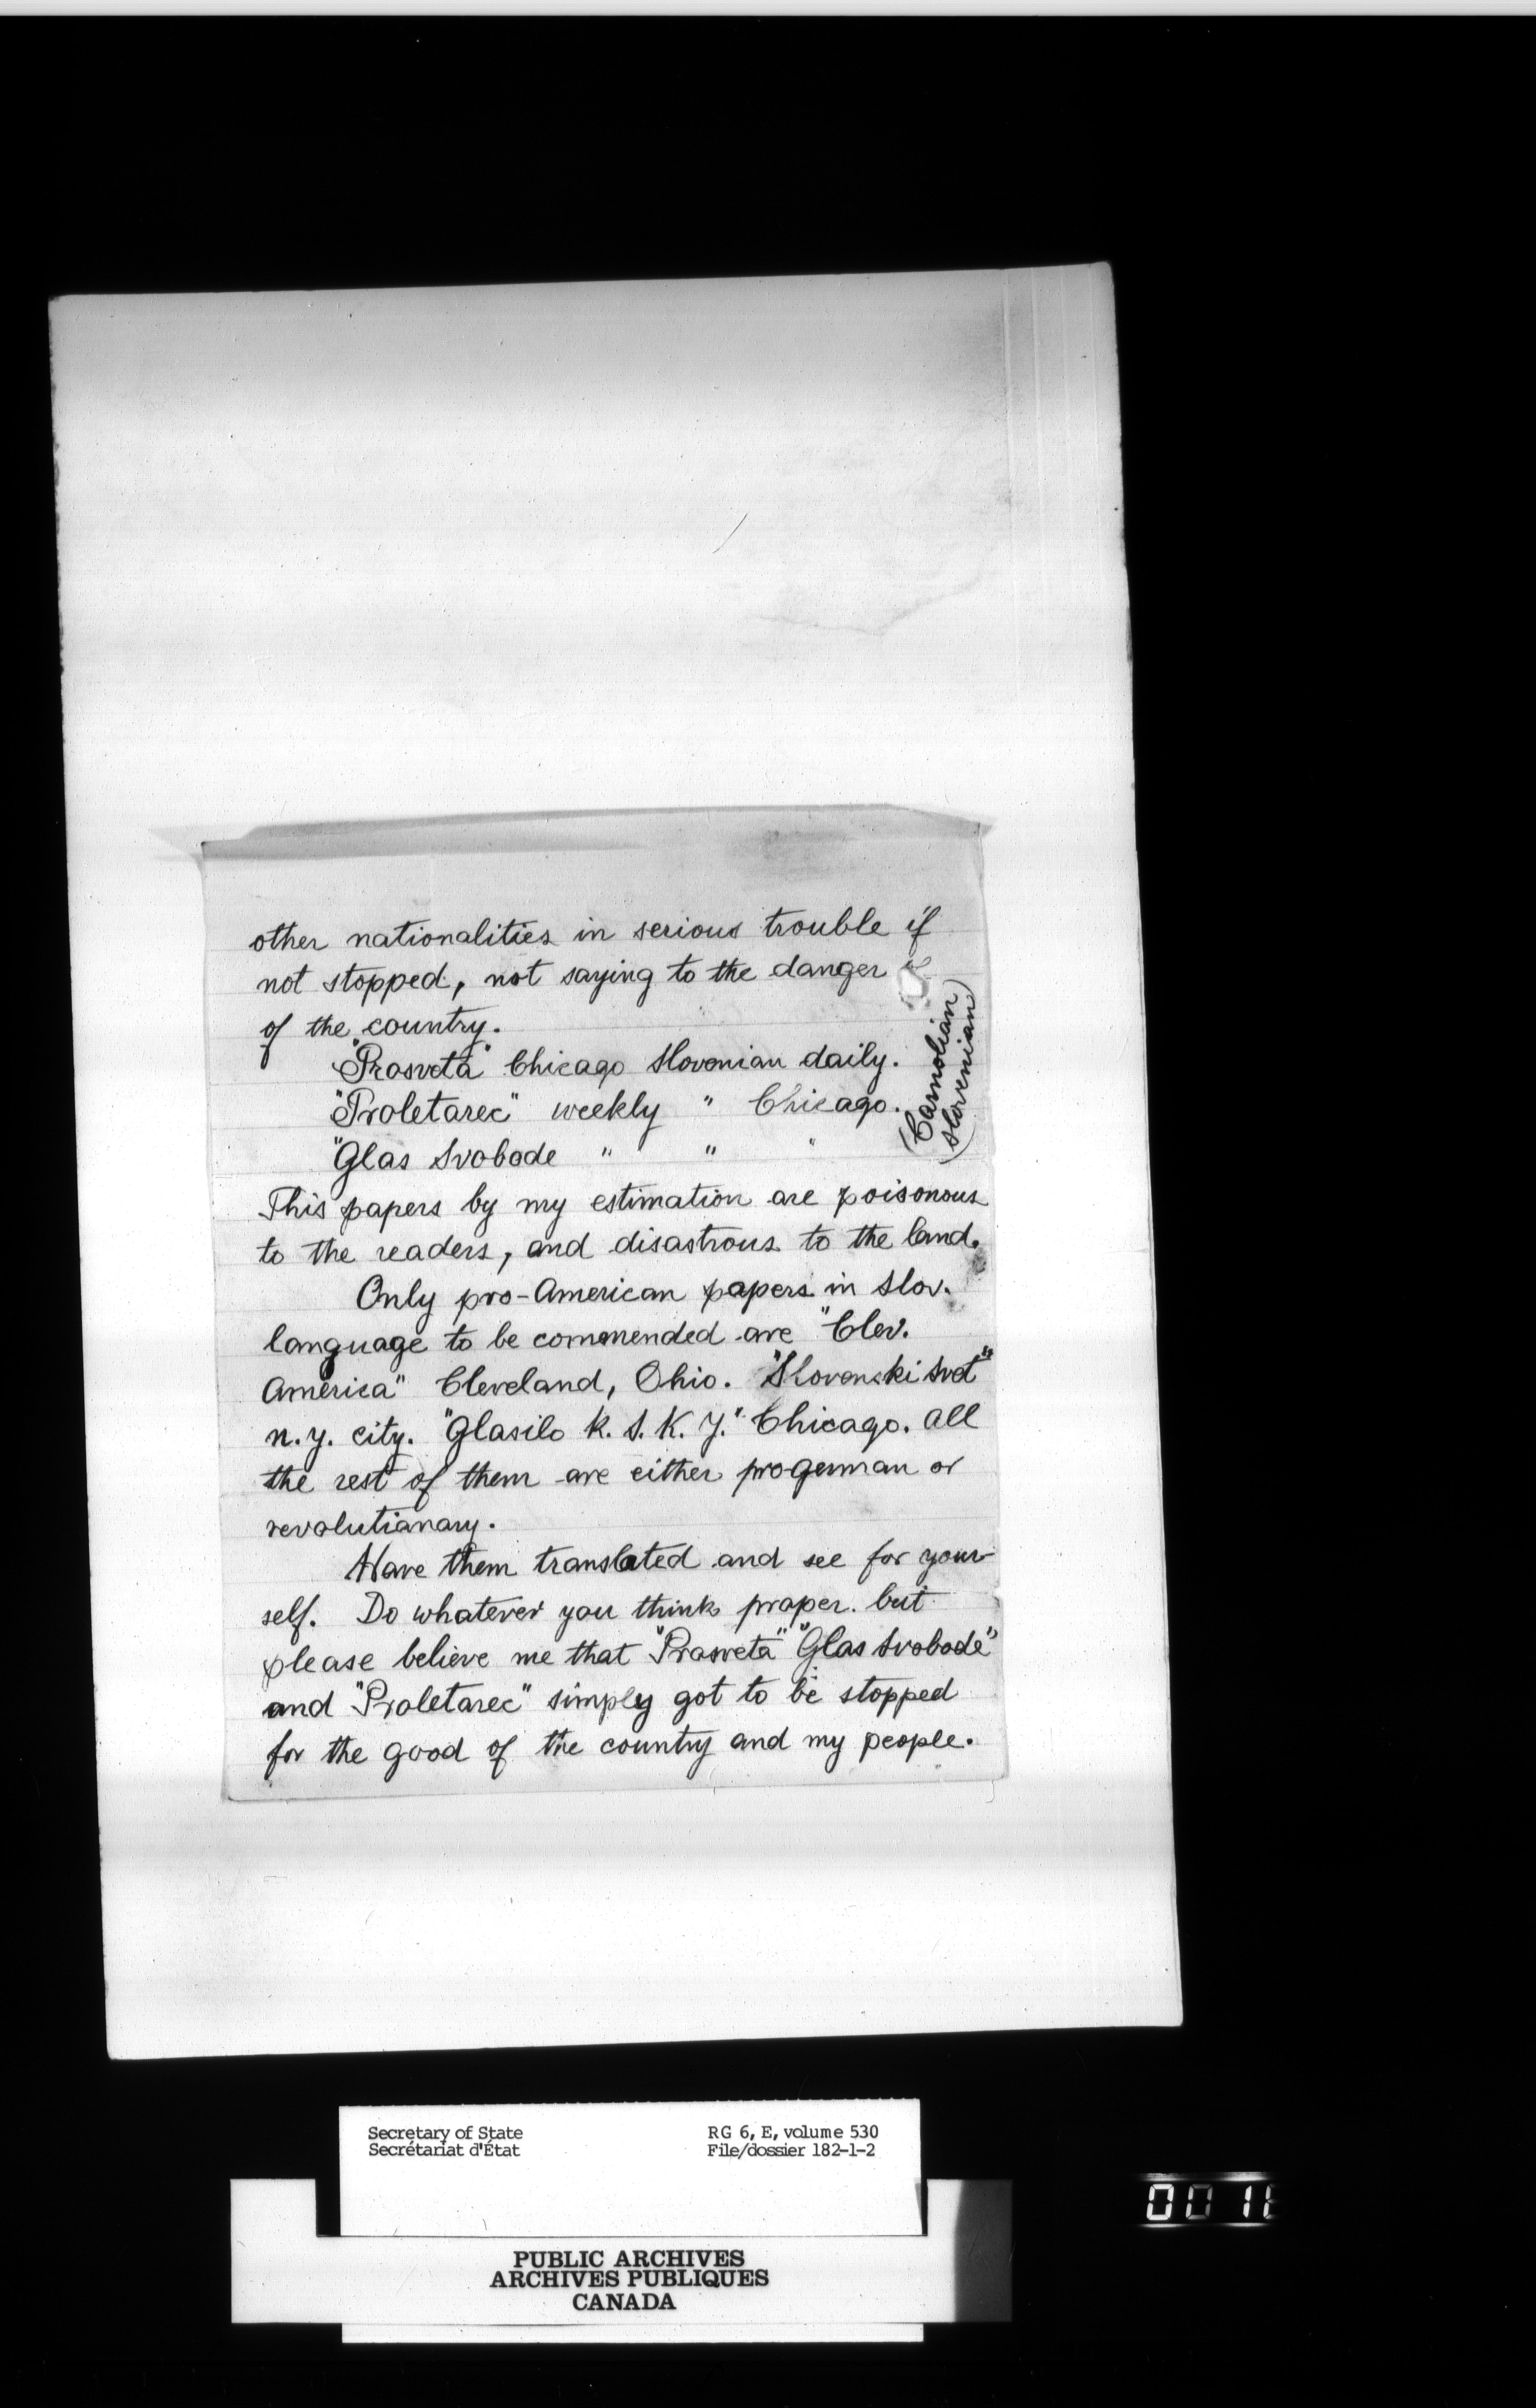 other nationalities in serious trouble if
not stopped, not saying to the danger
of the country.
"Prosveta" Chicago Slovenian daily.
"Proletarec" weekly " Chicago.
"Glas Svobode " " "
(Carnolian)
(Slovenian)
This papers by my estimation are poisonous
to the readers, and disastrous to the land.
Only pro-American papers in Slov.
language to be commended are "Clev.
America" Cleveland, Ohio. "Slovenski Svet"
n.y. city. "Glasilo K. S. K. J." Chicago. All
the rest of them are either progerman or
revolutianary.
Have them translated and see for your-
self. Do whatever you think proper. but
please believe me that "Prosveta" "Glas Svobode"
and "Proletarec" simply got to be stopped
for the good of the country and my people.
Secretary of State
Secrétariat d'État
RG 6, E, volume 530
File/dossier 182-1-2
PUBLIC ARCHIVES
ARCHIVES PUBLIQUES
CANADA